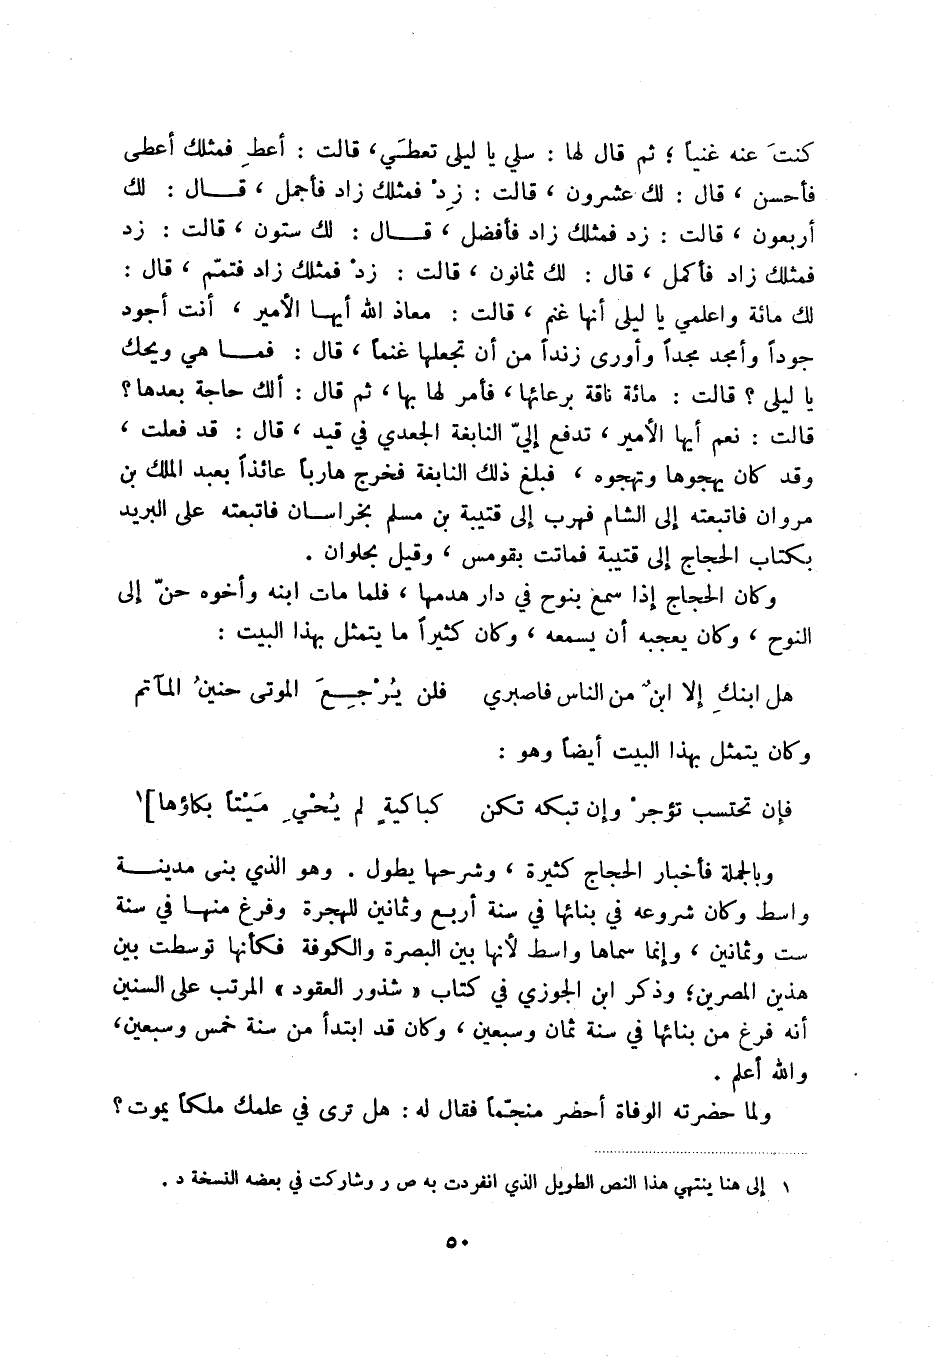 كنتَ عنه غنياً ؛ ثم قال لها : سلي يا ليلى تعطَي، قالت : أعطِ فمثلك أعطى
فأحسن ، قال : لك عشرون ، قالت : زدْ فمثلك زاد فأجمل ، قـــال : لك
أربعون ، قالت : زد فمثلك زاد فأفضل ، قـــال : لك ستون ، قالت : زد
فمثلك زاد فأكمل ، قال : لك ثمانون ، قالت : زدْ فمثلك زاد فتمّم ، قال :
لك مائة واعلمي يا ليلى أنها غنم ، قالت : معاذ الله أيهـا الأمير ، أنت أجود
جوداً وأمجد مجداً وأورى زنداً من أن تجعلها غنماً ، قال : فمـا هي ويحك
يا ليلى ؟ قالت : مائة ناقة برعائها ، فأمر لها بها ، ثم قال : ألك حاجة بعدها؟
قالت : نعم أيها الأمير ، تدفع إليّ النابغة الجعدي في قيد ، قال : قد فعلت ،
وقد كان يهجوها وتهجوه ، فبلغ ذلك النابغة فخرج هارباً عائذاً بعبد الملك بن
مروان فاتبعته إلى الشام فهرب إلى قتيبة بن مسلم بخراسـان فاتبعته على البريد
بكتاب الحجاج إلى قتيبة فماتت بقومس ، وقيل بحلوان .
وكان الحجاج إذا سمع بنوح في دار هدمها ، فلما مات ابنه وأخوه حنّ إلى
النوح ، وكان يعجبه أن يسمعه ، وكان كثيراً ما يتمثل بهذا البيت :
هل ابنكِ إلا ابنٌ من الناس فاصبري فلن يُرْجِـعَ الموتى حنينُ المآتم
وكان يتمثل بهذا البيت أيضاً وهو :
فإن تحتسب تؤجرْ وإن تبكه تكن كباكيةٍ لم يُحْيِ مَيْتاً بكاؤها]١
وبالجملة فأخبار الحجاج كثيرة ، وشرحها يطول . وهو الذي بنى مدينـــة
واسط وكان شروعه في بنائها في سنة أربع وثمانين للهجرة وفرغ منهـا في سنة
ست وثمانين ، وإنما سماها واسط لأنها بين البصرة والكوفة فكأنها توسطت بين
هذين المصرين؛ وذكر ابن الجوزي في كتاب « شذور العقود » المرتب على السنين
أنه فرغ من بنائها في سنة ثمان وسبعين ، وكان قد ابتدأ من سنة خمس وسبعين،
والله أعلم .
ولما حضرته الوفاة أحضر منجّماً فقال له : هل ترى في علمك ملكاً يموت ؟
١ إلى هنا ينتهي هذا النص الطويل الذي انفردت به ص ر وشاركت في بعضه النسخة د .
٥٠